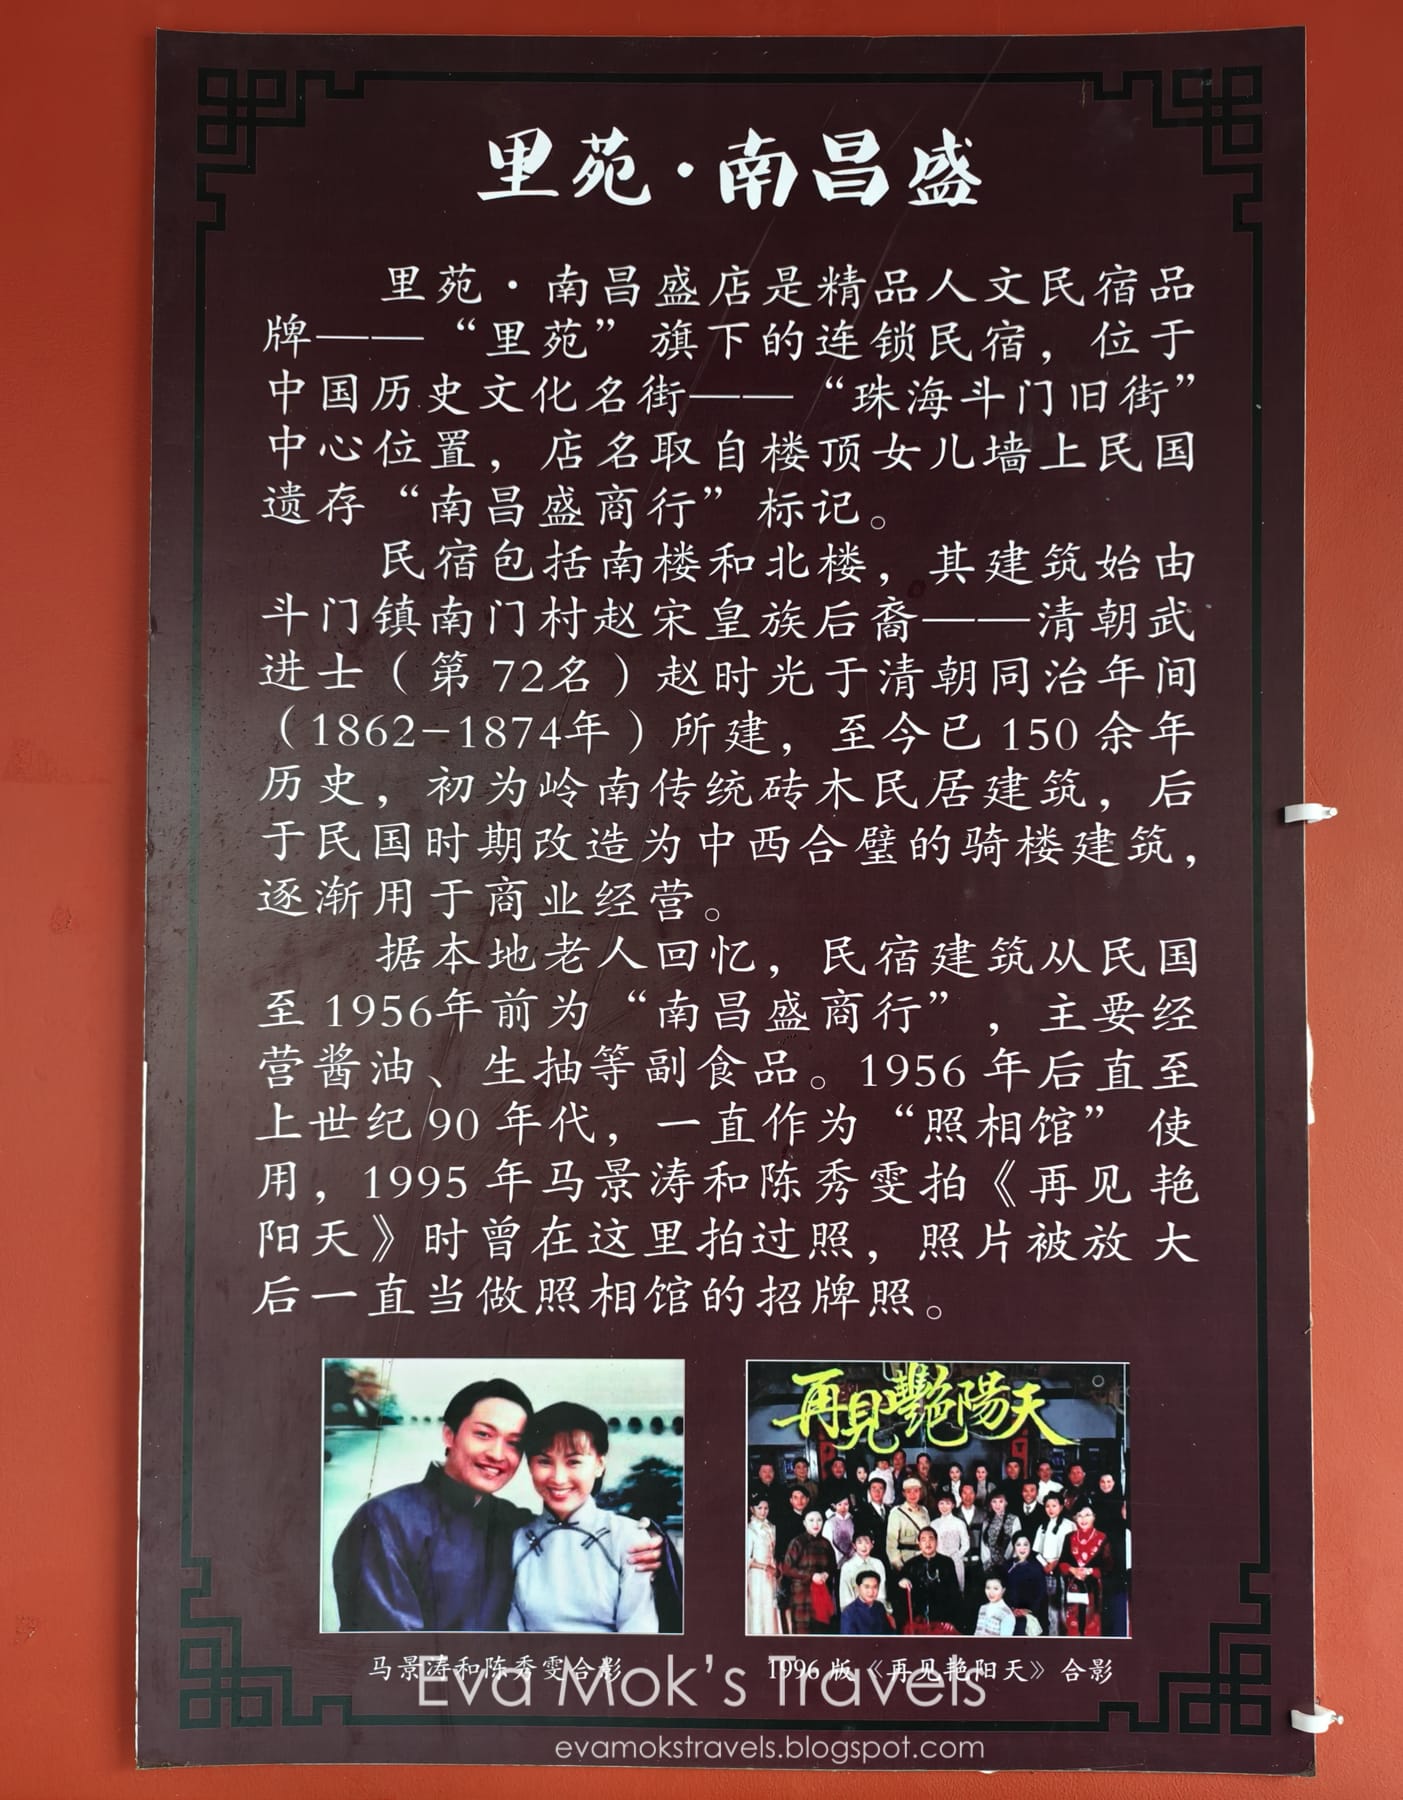 里苑·南昌盛
里苑·南昌盛店是精品人文民宿品
牌——“里苑”旗下的连锁民宿，位于
中国历史文化名街——“珠海斗门旧街”
中心位置，店名取自楼顶女儿墙上民国
遗存“南昌盛商行”标记。
民宿包括南楼和北楼，其建筑始由
斗门镇南门村赵宋皇族后裔——清朝武
进士（第 72名）赵时光于清朝同治年间
（1862-1874年）所建，至今已 150 余年
历史，初为岭南传统砖木民居建筑，后
于民国时期改造为中西合璧的骑楼建筑，
逐渐用于商业经营。
据本地老人回忆，民宿建筑从民国
至 1956年前为“南昌盛商行”，主要经
营酱油、生抽等副食品。1956 年后直至
上世纪 90 年代，一直作为“照相馆” 使
用，1995 年马景涛和陈秀雯拍《再见 艳
阳天》时曾在这里拍过照，照片被放 大
后一直当做照相馆的招牌照。
再見艷陽天
马景涛和陈秀雯合影
1996 版《再见艳阳天》合影
Eva Mok's Travels
evamokstravels.blogspot.com